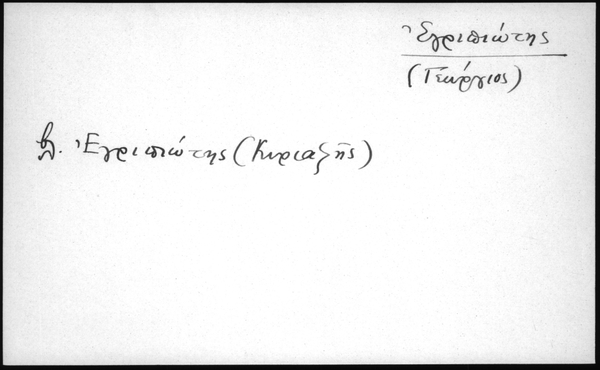 Ἐγριπιώτης
(Γεώργιος)
βλ. Ἐγριπιώτης (Κυριαζῆς)